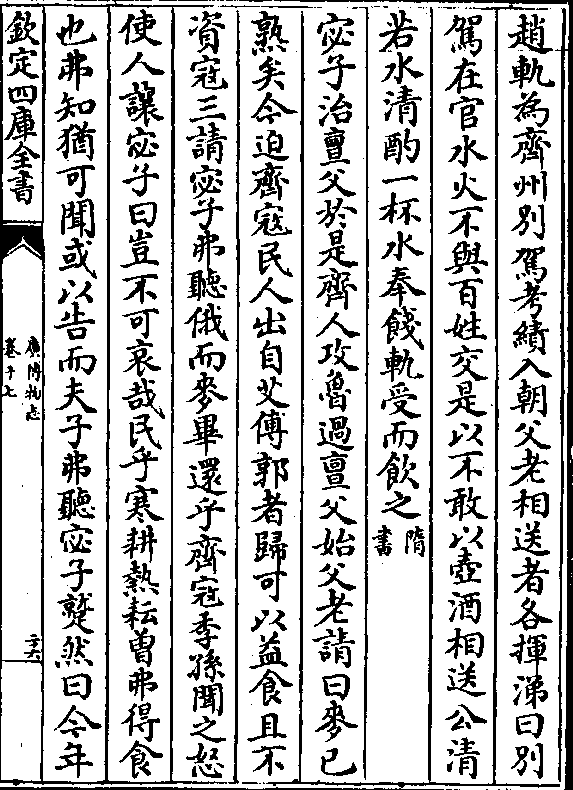 趙軌為齊州别駕考績入朝父老相送者各揮涕曰别
駕在官水火不與百姓交是以不敢以壺酒相送公清
若水清酌一杯水奉餞軌受而飲之隋書
宓子治亶父於是齊人攻魯過亶父始父老請曰麥已
熟矣今迫齊寇民人出自艾傅郭者歸可以益食且不
資寇三請宓子弗聽俄而麥畢還乎齊寇季孫聞之怒
使人讓宓子曰豈不可哀哉民乎寒耕熱耘曽弗得食
也弗知猶可聞或以告而夫子弗聽宓子蹵然曰今年
欽定四庫全書
廣博物志
卷十七
二六